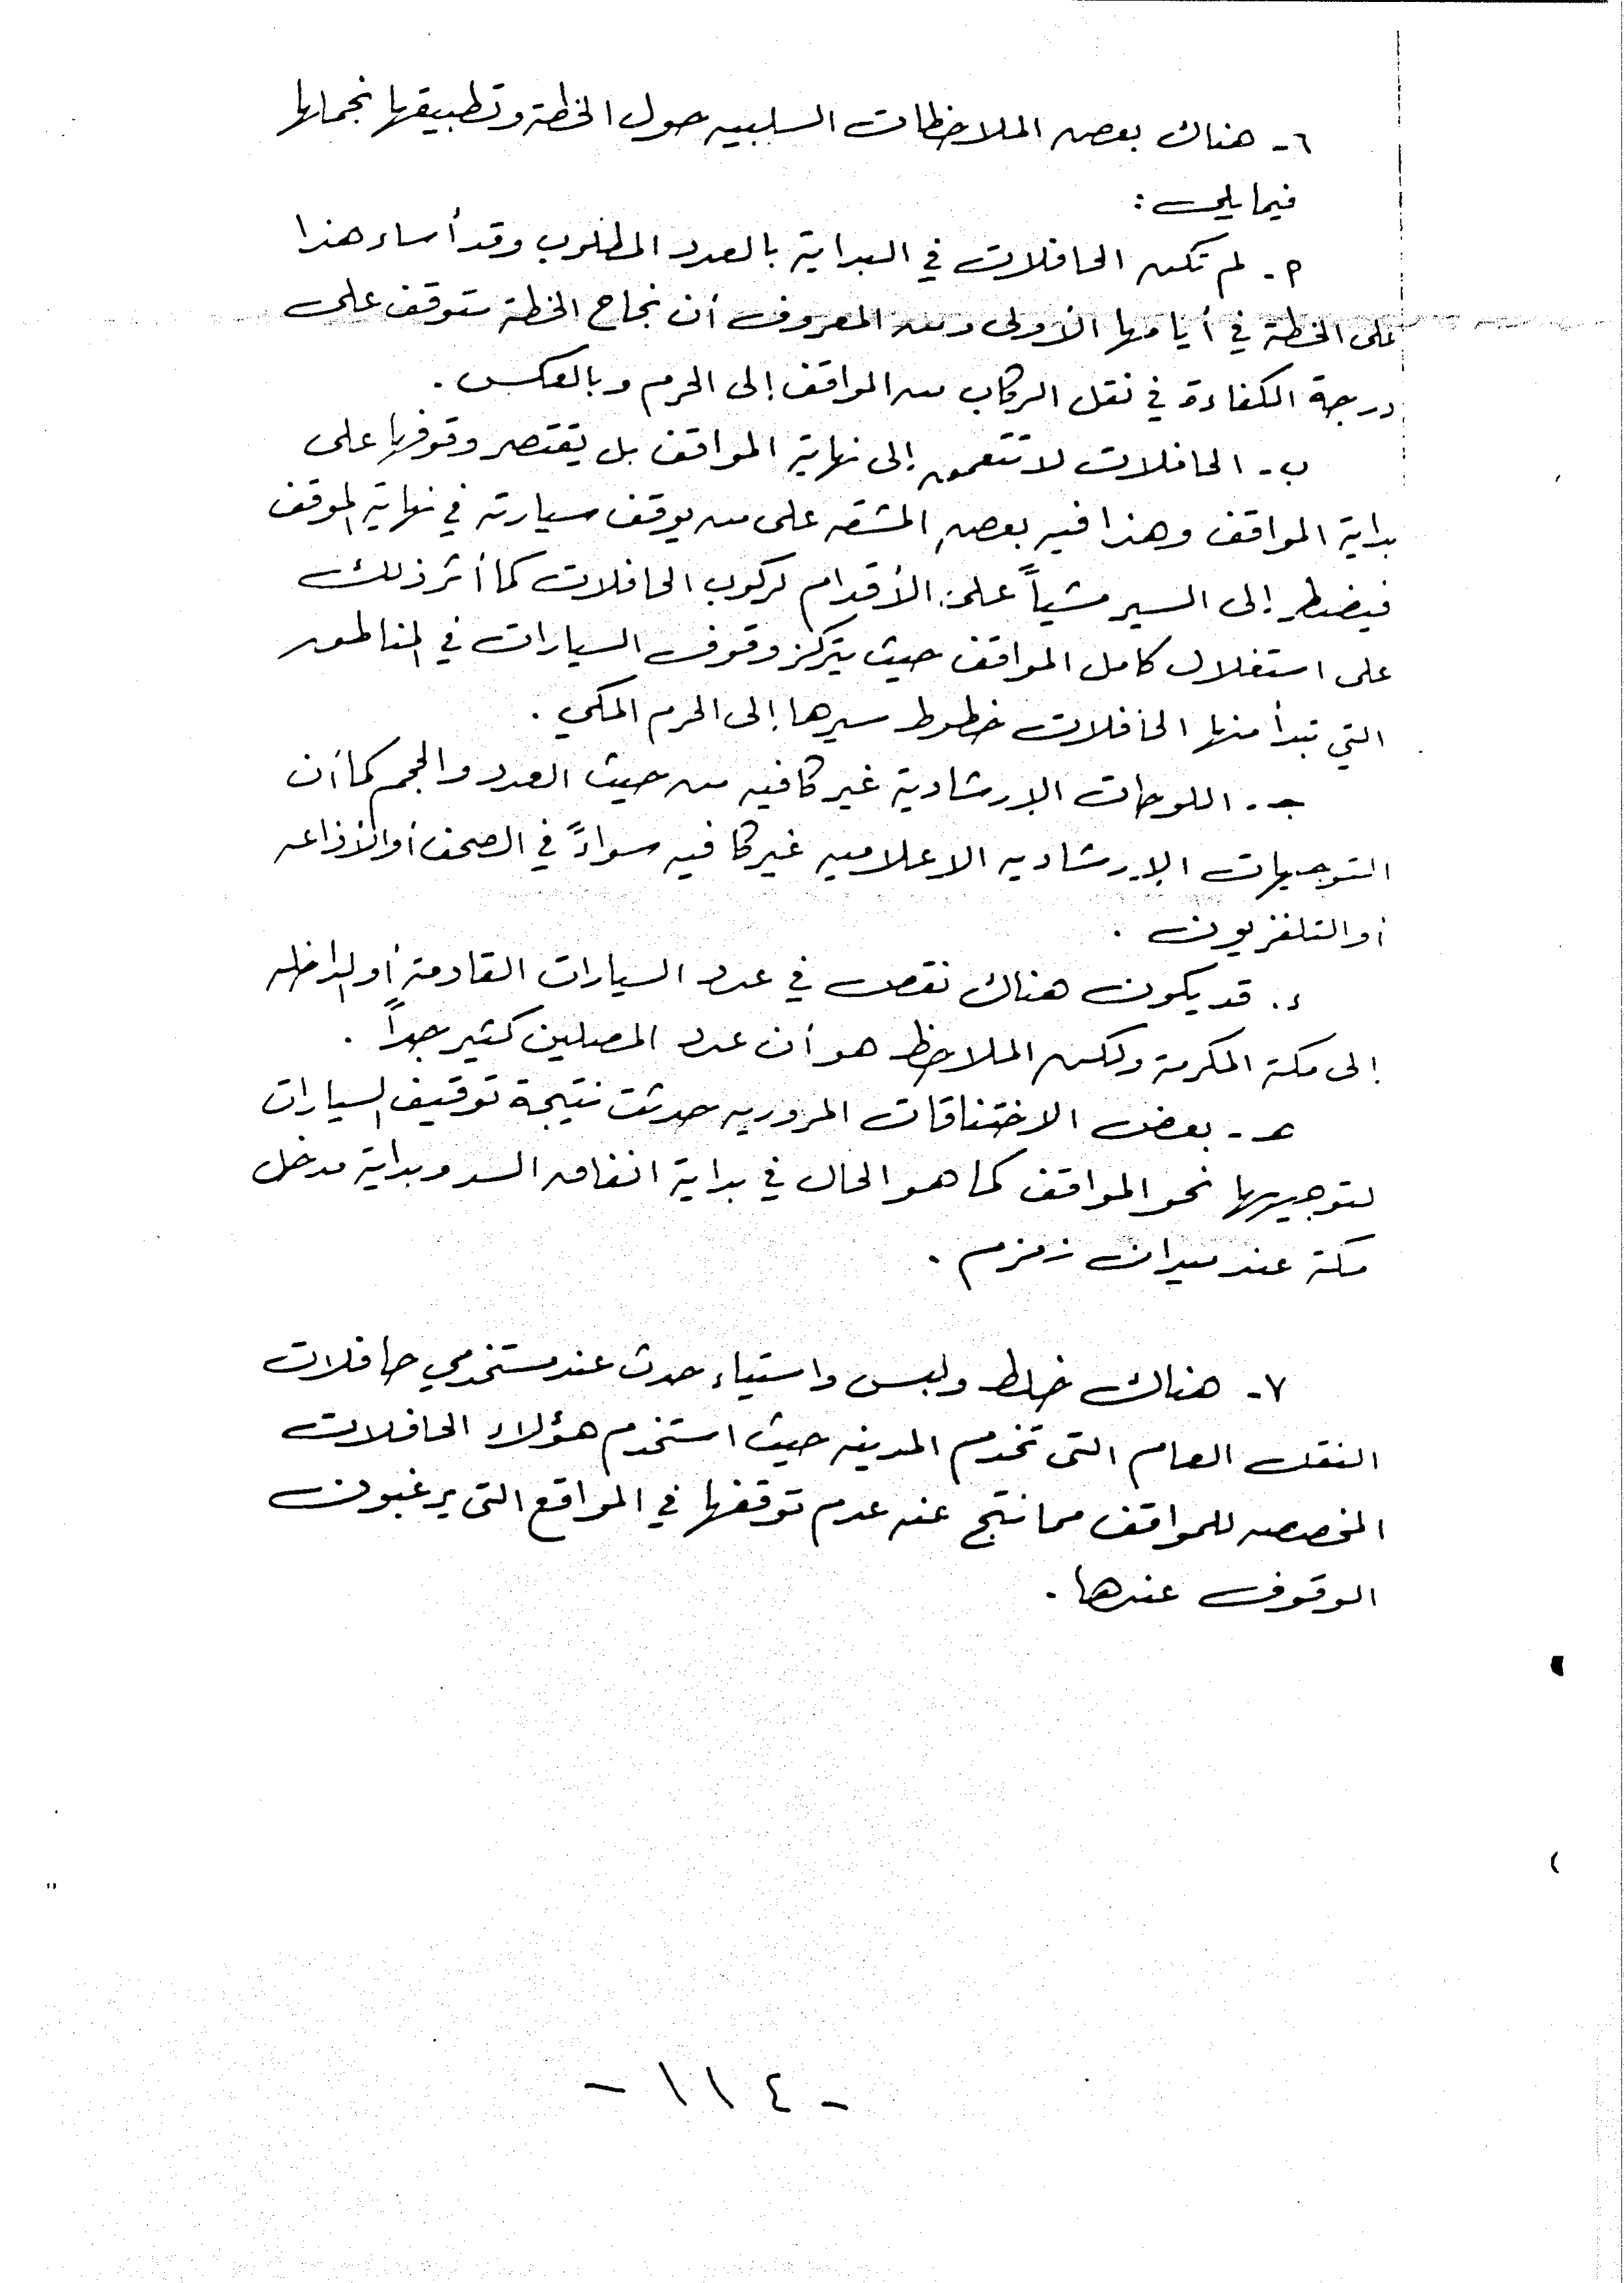 ٦- هناك بعض الملاحظات السلبيه حول الخطة وتطبيقها نجملها
فيما يلي :
أ - لم تكن الحافلات في البداية بالعدد المطلوب وقد أساء هذا
على الخطة في أيامها الأولى ومن المعروف أن نجاح الخطة متوقف على
درجة الكفاءة في نقل الركاب من المواقف إلى الحرم وبالعكس .
ب - الحافلات لا تتعمق إلى نهاية المواقف بل يقتصر وقوفها على
بداية المواقف وهذا فيه بعض المشقه على من يوقف سيارته في نهاية الموقف
فيضطر إلى السير مشياً على الأقدام لركوب الحافلات كما أثر ذلك
على استغلال كامل المواقف حيث يتركز وقوف السيارات في المناطق
التي تبدأ منها الحافلات خطوط سيرها إلى الحرم المكي .
جـ - اللوحات الإرشادية غير كافيه من حيث العدد والحجم كما أن
التوجيهات الإرشاديه الاعلاميه غير كافيه سواءً في الصحف أو الأذاعه
أو التلفزيون .
د . قد يكون هناك نقص في عدد السيارات القادمة أو الداخله
إلى مكة المكرمة ولكن الملاحظ هو أن عدد المصلين كثير جداً .
هـ - بعض الاختناقات المروريه حدثت نتيجة توقيف السيارات
لتوجيهها نحو المواقف كما هو الحال في بداية انفاق السد وبداية مدخل
مكة عند ميدان زمزم .
٧- هناك خلط ولبس واستياء حدث عند مستخدمي حافلات
النقل العام التى تخدم المدينه حيث استخدم هؤلاء الحافلات
المخصصه للمواقف مما نتج عنه عدم توقفها في المواقع التى يرغبون
الوقوف عندها .
- ١١٤ -